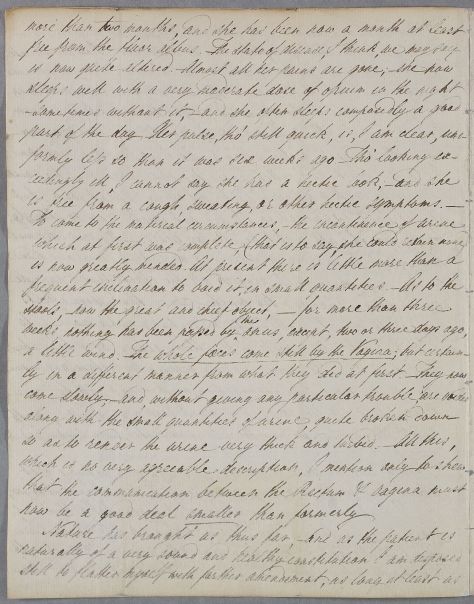 more than two months, and she has been now a month at least
free from the fluor albus. The state of disease, I think we may say
is now quite altered. Almost all her pains are gone, she now
sleeps well with a very moderate dose of opium in the night
sometimes without it, and she often sleeps composedly a good
part of the day. Her pulse, tho' still quick, is, I am clear, uni-
formly less so than it was six weeks ago. Tho' looking ex-
ceedingly ill, I cannot say she has a hectic look, and she
is free from a cough, sweating, or other hectic symptoms. —
To come to the material circumstances, the incontinence of urine
which at first was complete, that is to say, she could retain none,
is now greatly mended. At present there is little more than a
frequent inclination to void it in small quantities. As to the
stools, now the great and chief object, — for more than three
weeks nothing has been passed by the anus, except, two or three days ago
a little wind. The whole fæces come still by the Vagina, but certain-
ly in a different manner from what they did at first. They now
come slowly, and without giving any particular trouble, are
along with the small quantities of urine, quite broken down
so as to render the urine very thick and turbid. — All this,
which is no very agreeable description, I mention only to shew
that the communication between the Rectum & Vagina must
now be a good deal smaller than formerly.
Nature has brought us thus far, and as the patient is
naturally of a very sound and healthy constitution I am disposed
still to flatter myself with further amendment, as long at least as